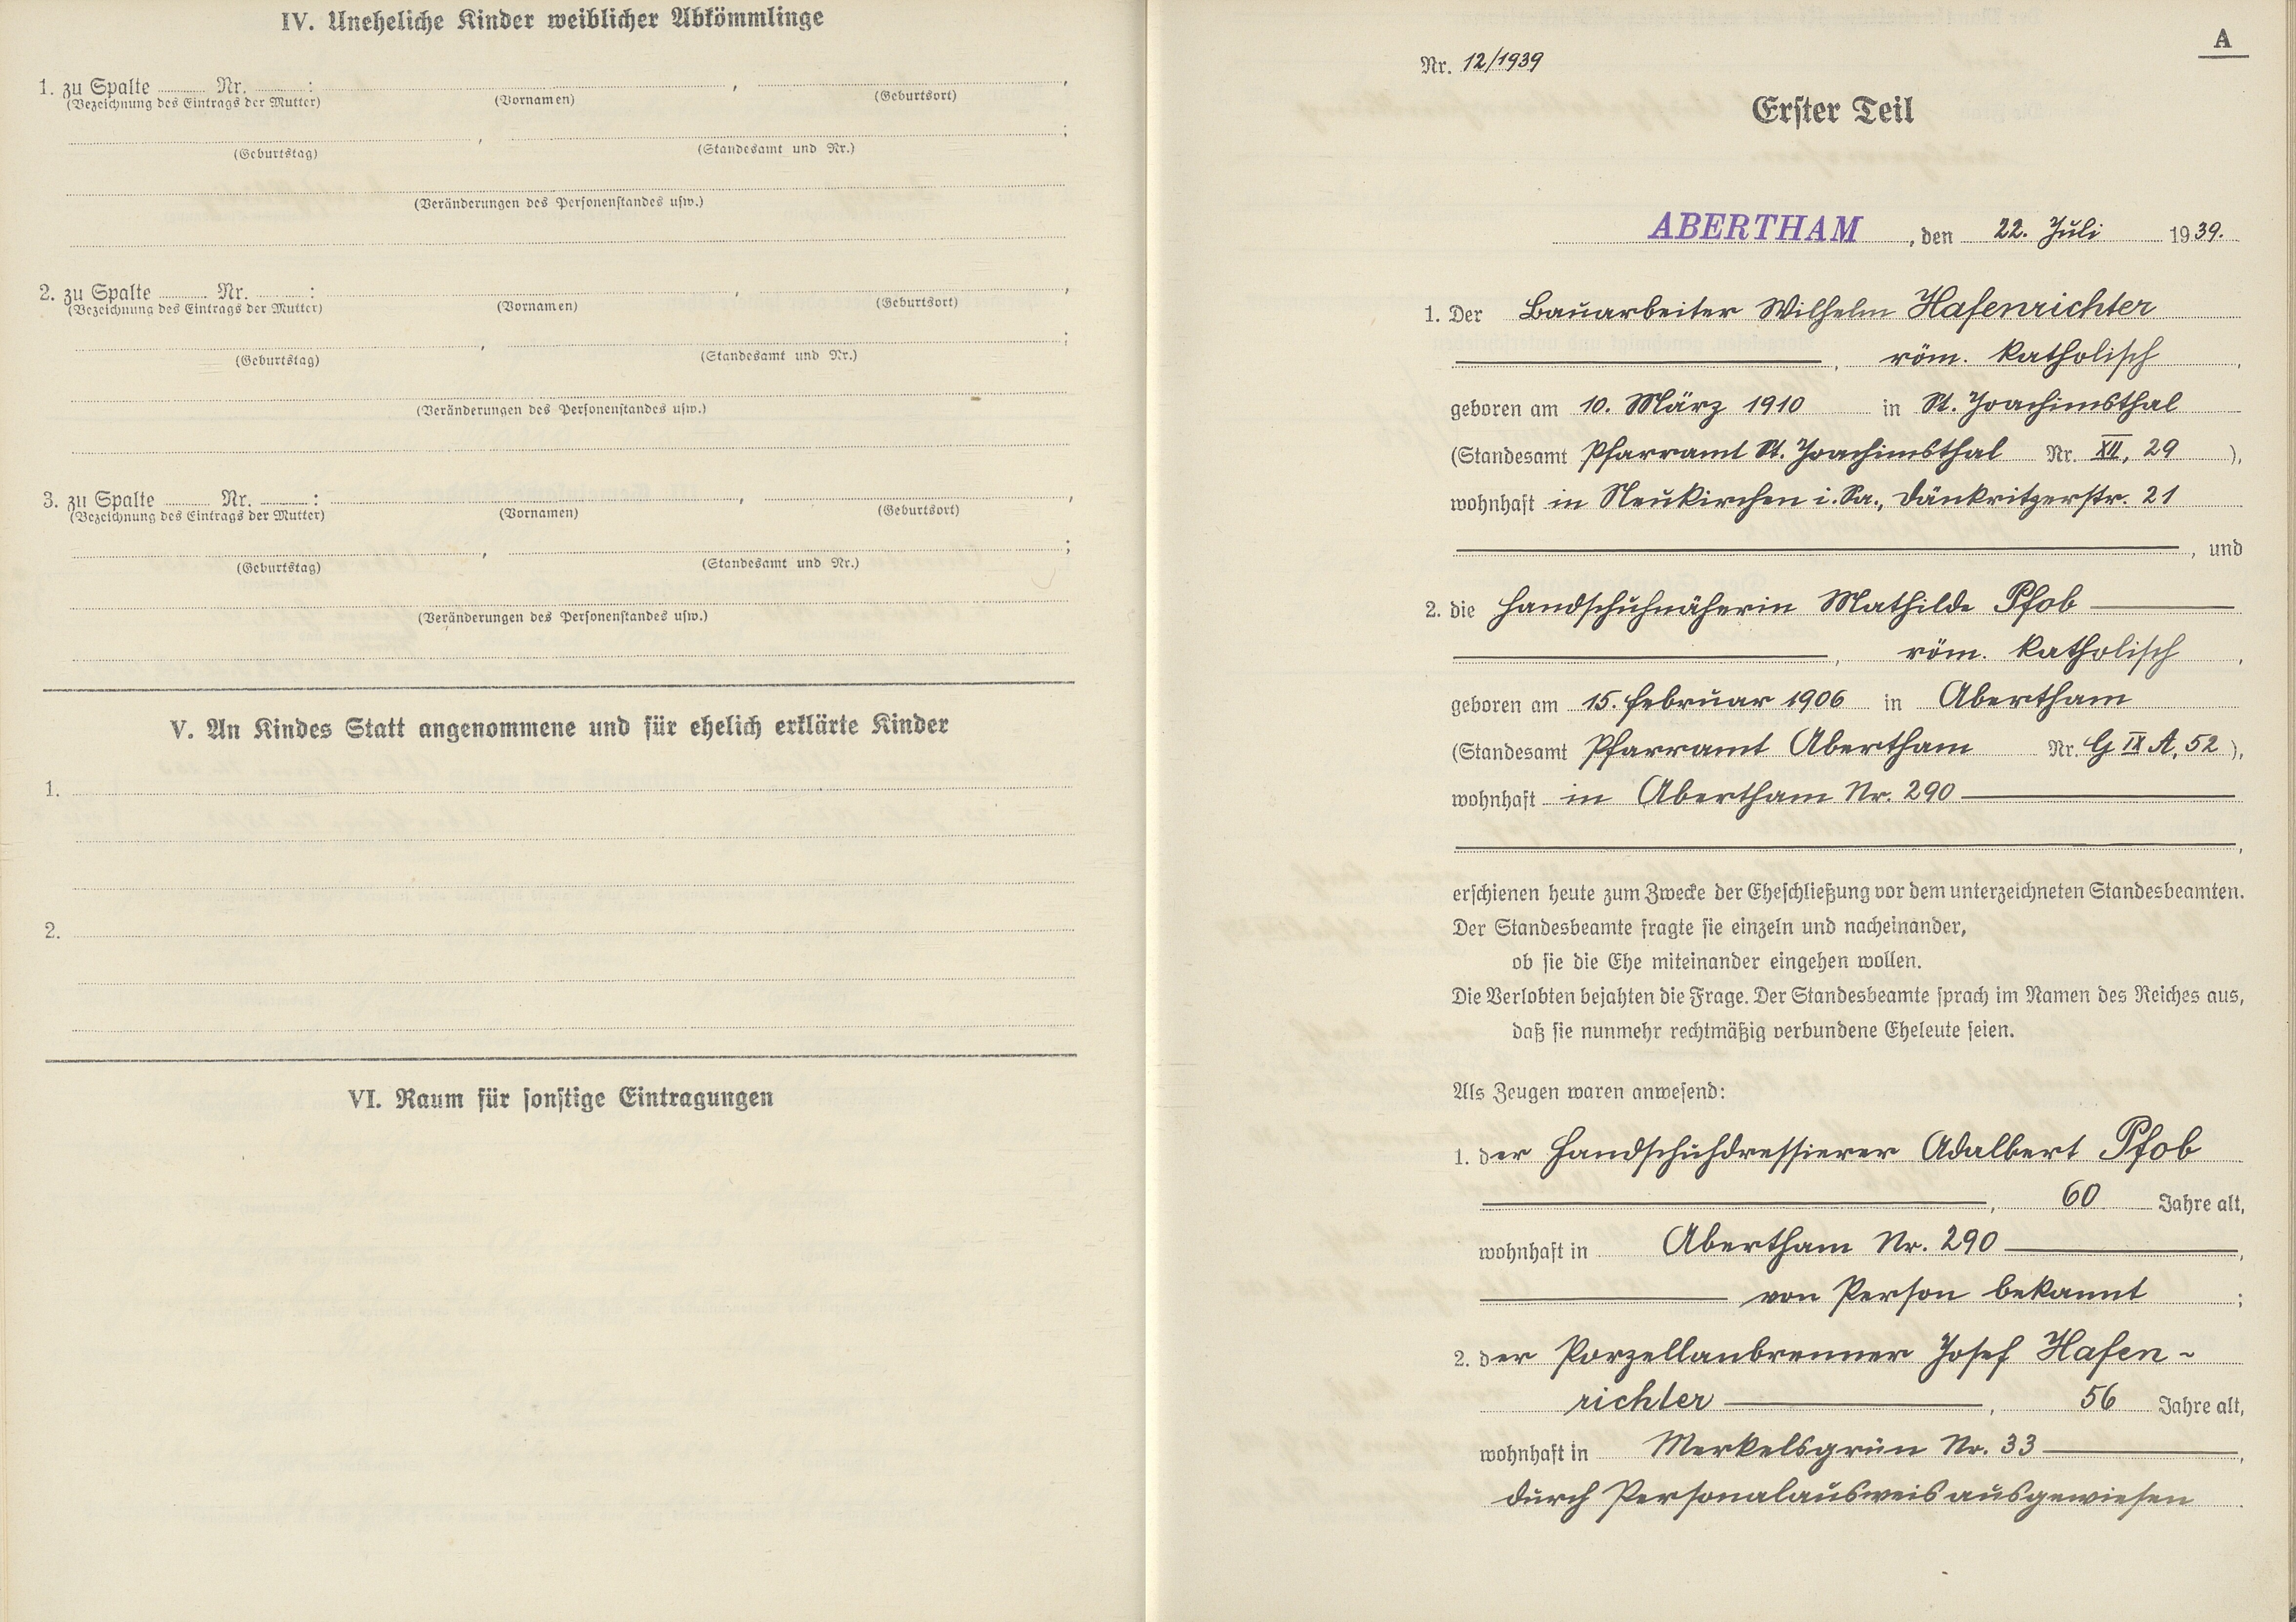 IV. Uneheliche Kinder weiblicher Abkömmlinge
1. zu Spalte ........ Nr. ........ : , ,
(Bezeichnung des Eintrags der Mutter) (Vornamen) (Geburtsort)
, ;
(Geburtstag) (Standesamt und Nr.)
(Veränderungen des Personenstandes usw.)
2. zu Spalte ........ Nr. ........ : , ,
(Bezeichnung des Eintrags der Mutter) (Vornamen) (Geburtsort)
, ;
(Geburtstag) (Standesamt und Nr.)
(Veränderungen des Personenstandes usw.)
3. zu Spalte ........ Nr. ........ : , ,
(Bezeichnung des Eintrags der Mutter) (Vornamen) (Geburtsort)
, ;
(Geburtstag) (Standesamt und Nr.)
(Veränderungen des Personenstandes usw.)
V. An Kindes Statt angenommene und für ehelich erklärte Kinder
1.
2.
VI. Raum für sonstige Eintragungen
A
Nr. 12/1939
Erster Teil
ABERTHAM, den 22. Juli 1939.
1. Der Bauarbeiter Wilhelm Hafenrichter
, röm. katholisch,
geboren am 10. März 1910 in St. Joachimsthal
(Standesamt Pfarramt St. Joachimsthal Nr. XII, 29),
wohnhaft in Neukirchen i. Sa., Dänkritzerstr. 21
, und
2. die Handschuhnäherin Mathilde Pfob
, röm. katholisch,
geboren am 15. Februar 1906 in Abertham
(Standesamt Pfarramt Abertham Nr. G IX A, 52),
wohnhaft in Abertham Nr. 290
,
erschienen heute zum Zwecke der Eheschließung vor dem unterzeichneten Standesbeamten.
Der Standesbeamte fragte sie einzeln und nacheinander,
ob sie die Ehe miteinander eingehen wollen.
Die Verlobten bejahten die Frage. Der Standesbeamte sprach im Namen des Reiches aus,
daß sie nunmehr rechtmäßig verbundene Eheleute seien.
Als Zeugen waren anwesend:
1. der Handschuhdressierer Adalbert Pfob
, 60 Jahre alt,
wohnhaft in Abertham Nr. 290,
von Person bekannt ;
2. der Porzellanbrenner Josef Hafen-
richter, 56 Jahre alt,
wohnhaft in Merkelsgrün Nr. 33,
durch Personalausweis ausgewiesen.